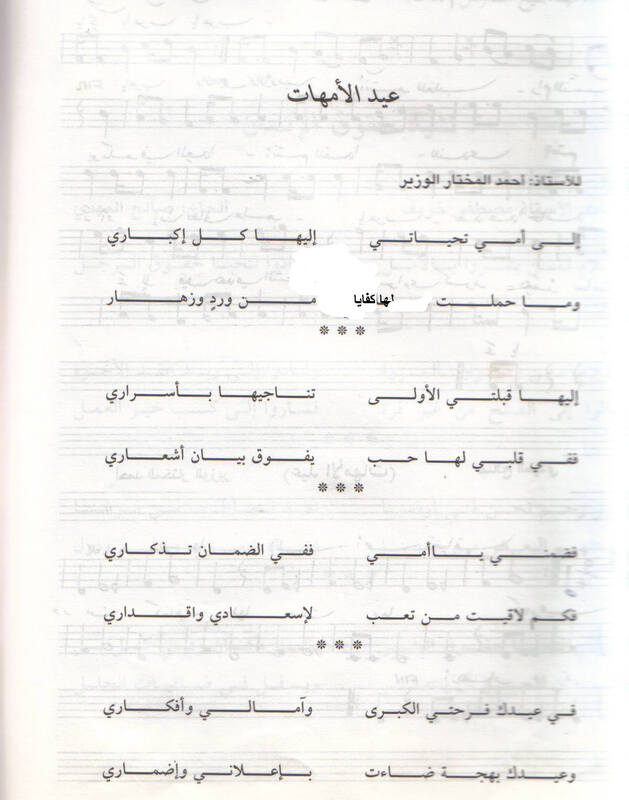 عيد الأمهات
للأستاذ: أحمد المختار الوزير
إلى أمي تحياتي إليها كل إكباري
وما حملت لها كفايا من وردٍ وزهار
***
إليها قبلتي الأولى تناجيها بأسراري
ففي قلبي لها حب يفوق بيان أشعاري
***
فضمني ياأمي ففي الضمان تذكاري
فكم لاقيت من تعب لإسعادي واقداري
***
في عيدك فرحتي الكبرى وآمالي وأفكاري
وعيدك بهجة ضاءت بإعلاني وإضماري